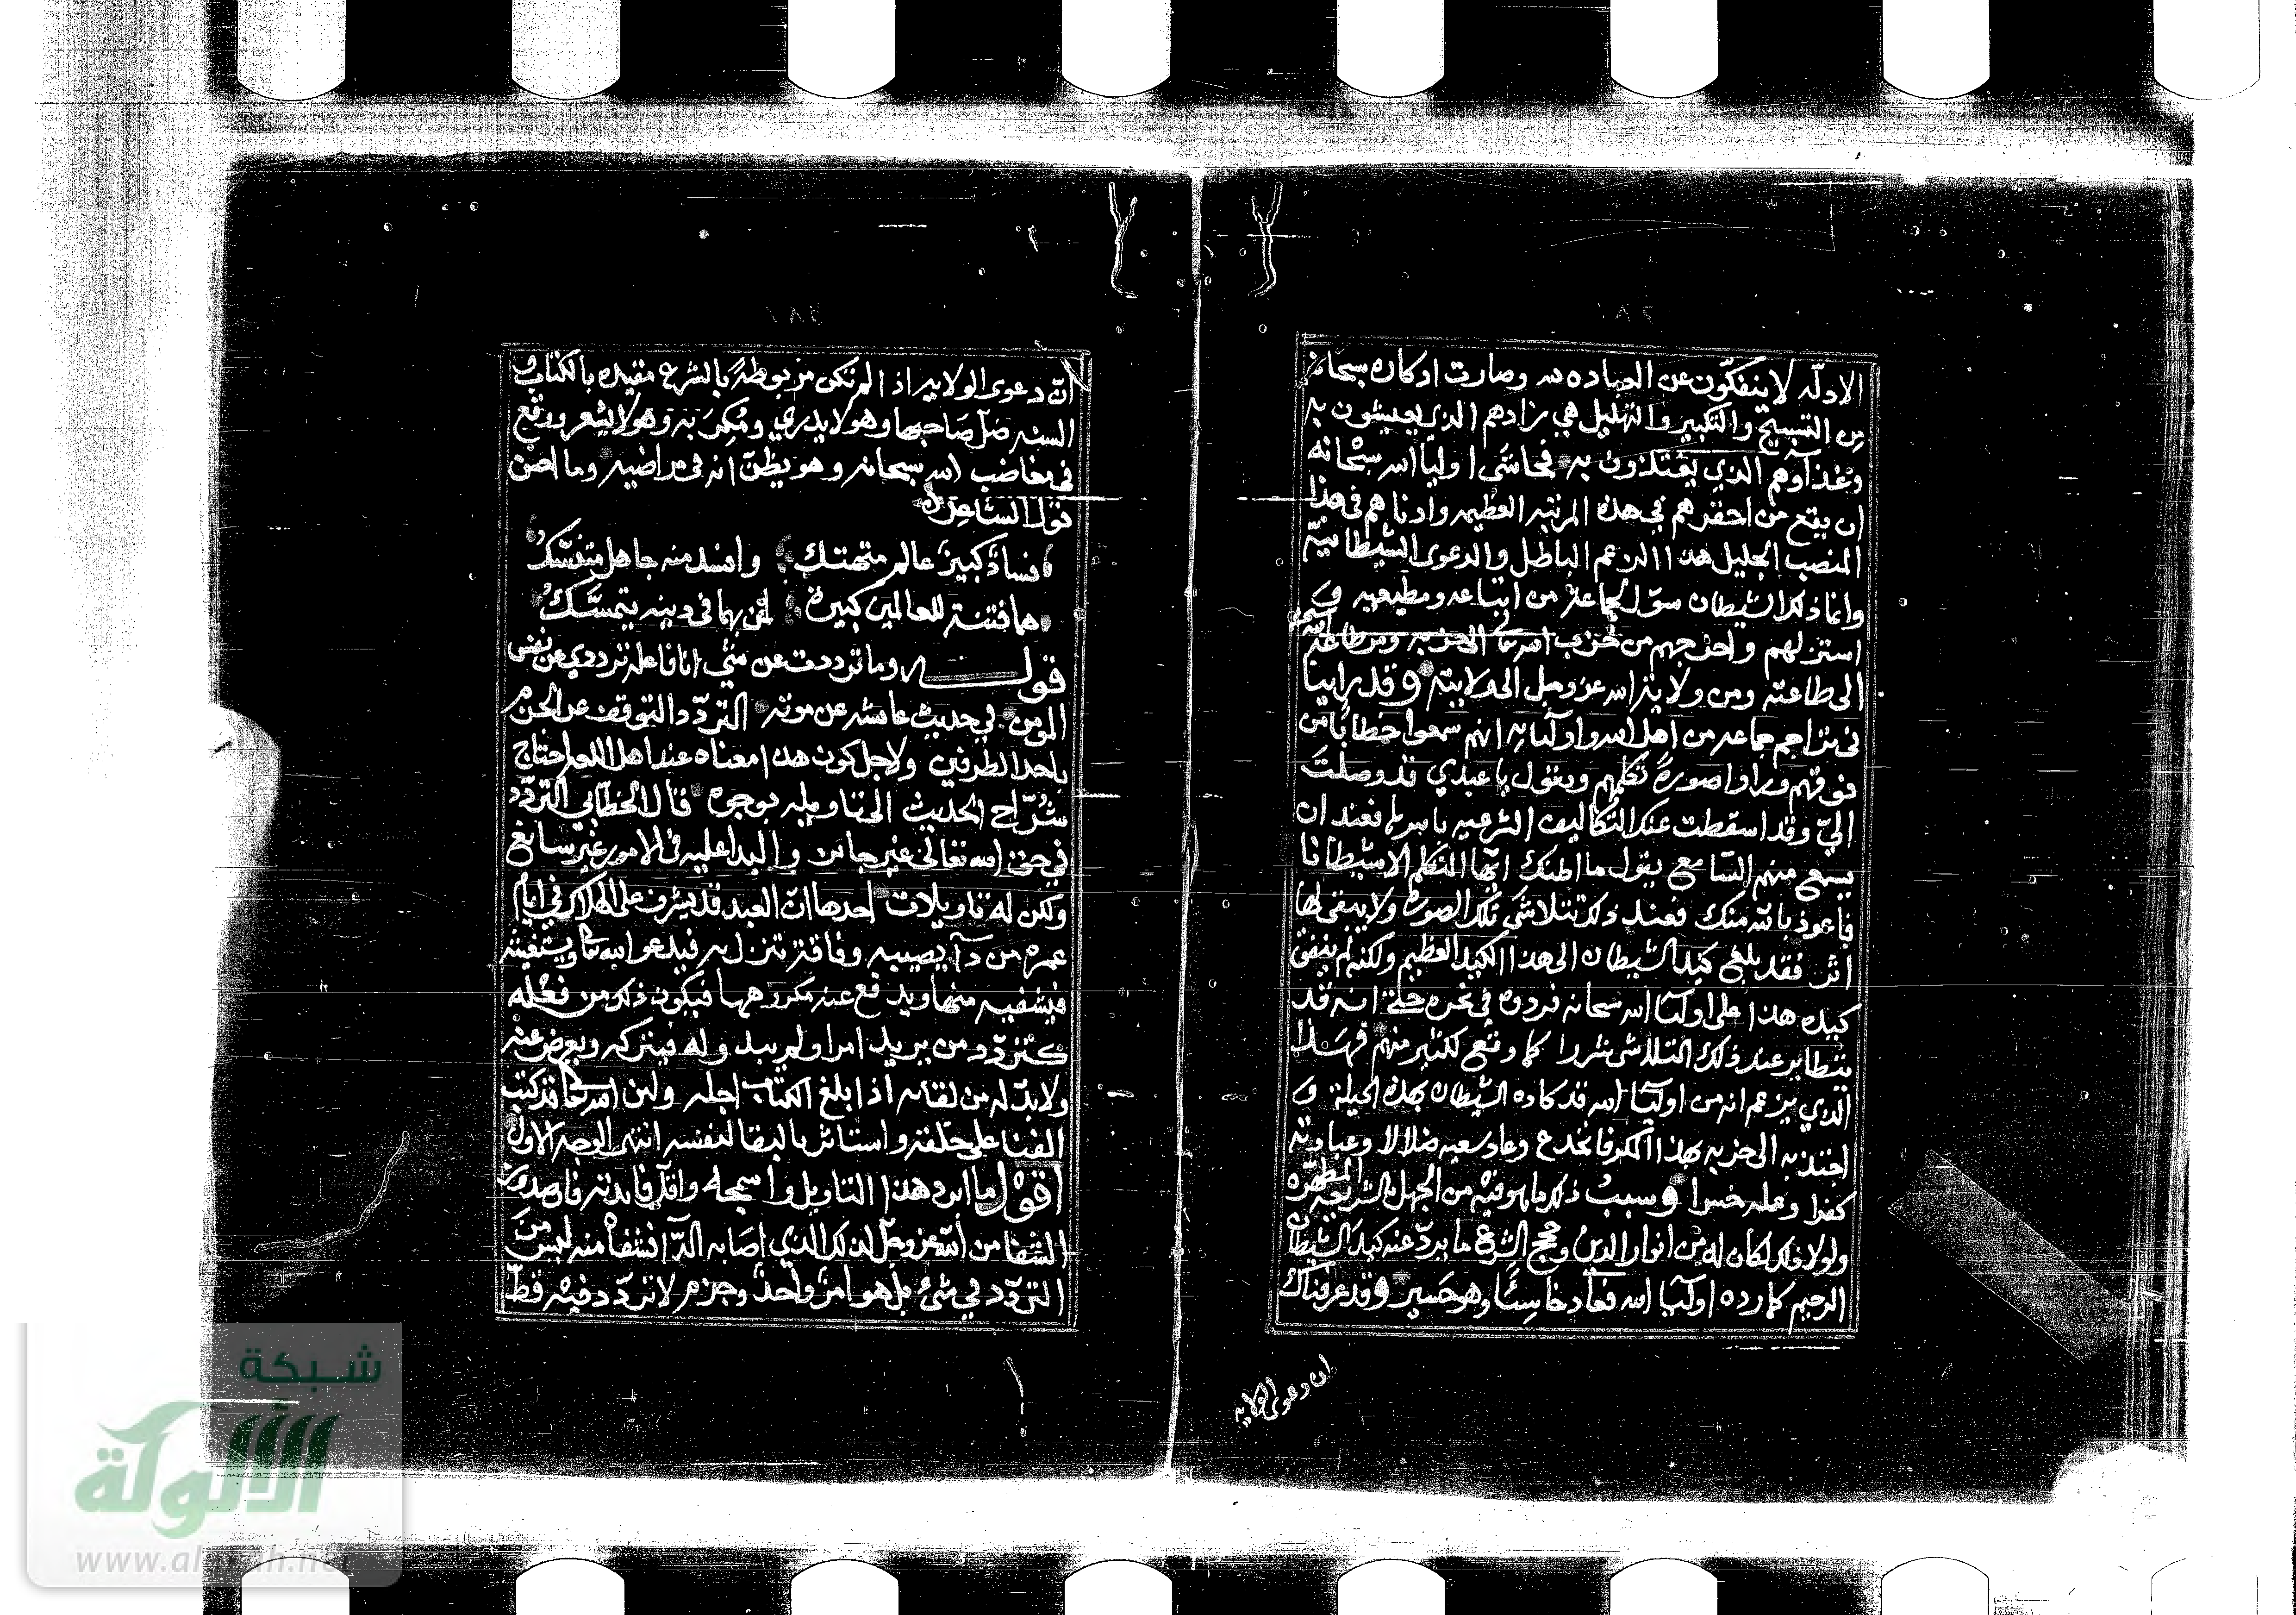 الادله لا ينفكون عن العباده لله وصارت اذكاره سبحانه
من التسبيح والتكبير والتهليل هي زادهم الذي يعيشون به
وغذاوهم الذي يغتذون به فحاشى اوليا الله سبحانه
ان يقع من احقرهم في هذه المرتبه العظيمه وادناهم في هذا
المنصب الجليل هذا الزعم الباطل والدعوى الشيطانيه
وانما ذلك الشيطان سول لجماعة من اتباعه ومطيعيه و
استزلهم واخرجهم من حزب الله الى حزبه ومن طاعة
الى طاعته ومن ولاية الله عز وجل الى ولايته وقد راينا
في تراجم جماعه من اهل الله واوليايه انهم سمعوا خطابا من
فوقهم وراوا صورة تكلمهم ويقول يا عبدي قد وصلت
الي وقد اسقطت عنك التكاليف الشرعيه باسرها فعند ان
يسمع منهم السامع يقول ما اظنك ايها المتكلم الا شيطانا
فاعوذ بالله منك فعند ذلك تتلاشى تلك الصورة ولا يبقى لها
اثر فقد بلغ كيد الشيطان الى هذا الكيد العظيم ولكنه لم ينفق
كيده هذا على اوليا الله سبحانه فردوه في نحره حتى انه قد
يتطاير عند ذلك التلاشي شررا كما وقع لكثير منهم فهذا
الذي يزعم انه من اوليا الله قد كاده الشيطان بهذه الحيلة و
اجتذبه الى حزبه بهذا المكر فانخدع وعاد سعيه ضلالا وعبادته
كفرا وعمله خسرا وسبب ذلك ما هو فيه من الجهل بالشريعة المطهره
ولولا ذلك لكان له من انوار الدين وحجج الشرع ما يرد عنه كيد الشيطان
الرجيم كما رده اوليا الله فعاد خاسئا وهو حسير وقد عرفناك
ان دعوى الولايه
ان دعوى الولايه اذا لم تكن مربوطة بالشرع مقيده بالكتاب و
السنه ضل صاحبها وهو لا يدري ومكر به وهو لا يشعر ووقع
في مغاضب الله سبحانه وهو يظن انه في مراضيه وما احسن
قول الشاعر
فساد كبير عالم متهتك وافسد منه جاهل متنسك
هما فتنة للعالمين كبيرة لمن بهما في دينه يتمسك
قوله وما ترددت عن شي انا فاعله ترددي عن نفس
المومن في حديث عايشه عن موته التردد التوقف عن الجزم
باحد الطرفين ولاجل كون هذا معناه عند اهل اللغه احتاج
شراح الحديث الى تاويله بوجوه قال الخطابي التردد
في حق الله تعالى غير جائز والبدا عليه في الامور غير سائغ
ولكن له تاويلات احدها ان العبد قد يشرف على الهلاك في ايام
عمره من دآ يصيبه وفاقة تنزل به فيدعو الله تعالى ويستغيثه
فيشفيه منها ويدفع عنه مكروهها فيكون ذلك من فعله
كتردد من يريد امرا ولم يبد وله فيتركه ويعرض عنه
ولا بد له من لقائه اذا بلغ الكتاب اجله ولان الله تعالى قد كتب
الفنا على خلقه واستاثر بالبقا لنفسه انتهى الوجه الاول
اقول ما ابرد هذا التاويل واسمجه واقل فايدته فان صدور
الشفا من الله عز وجل لذلك الذي اصابه الدآ فشفاه منه ليس من
التردد في شي بل هو امر واحد وجزم لا تردد فيه قط
شبكة
الألوكة